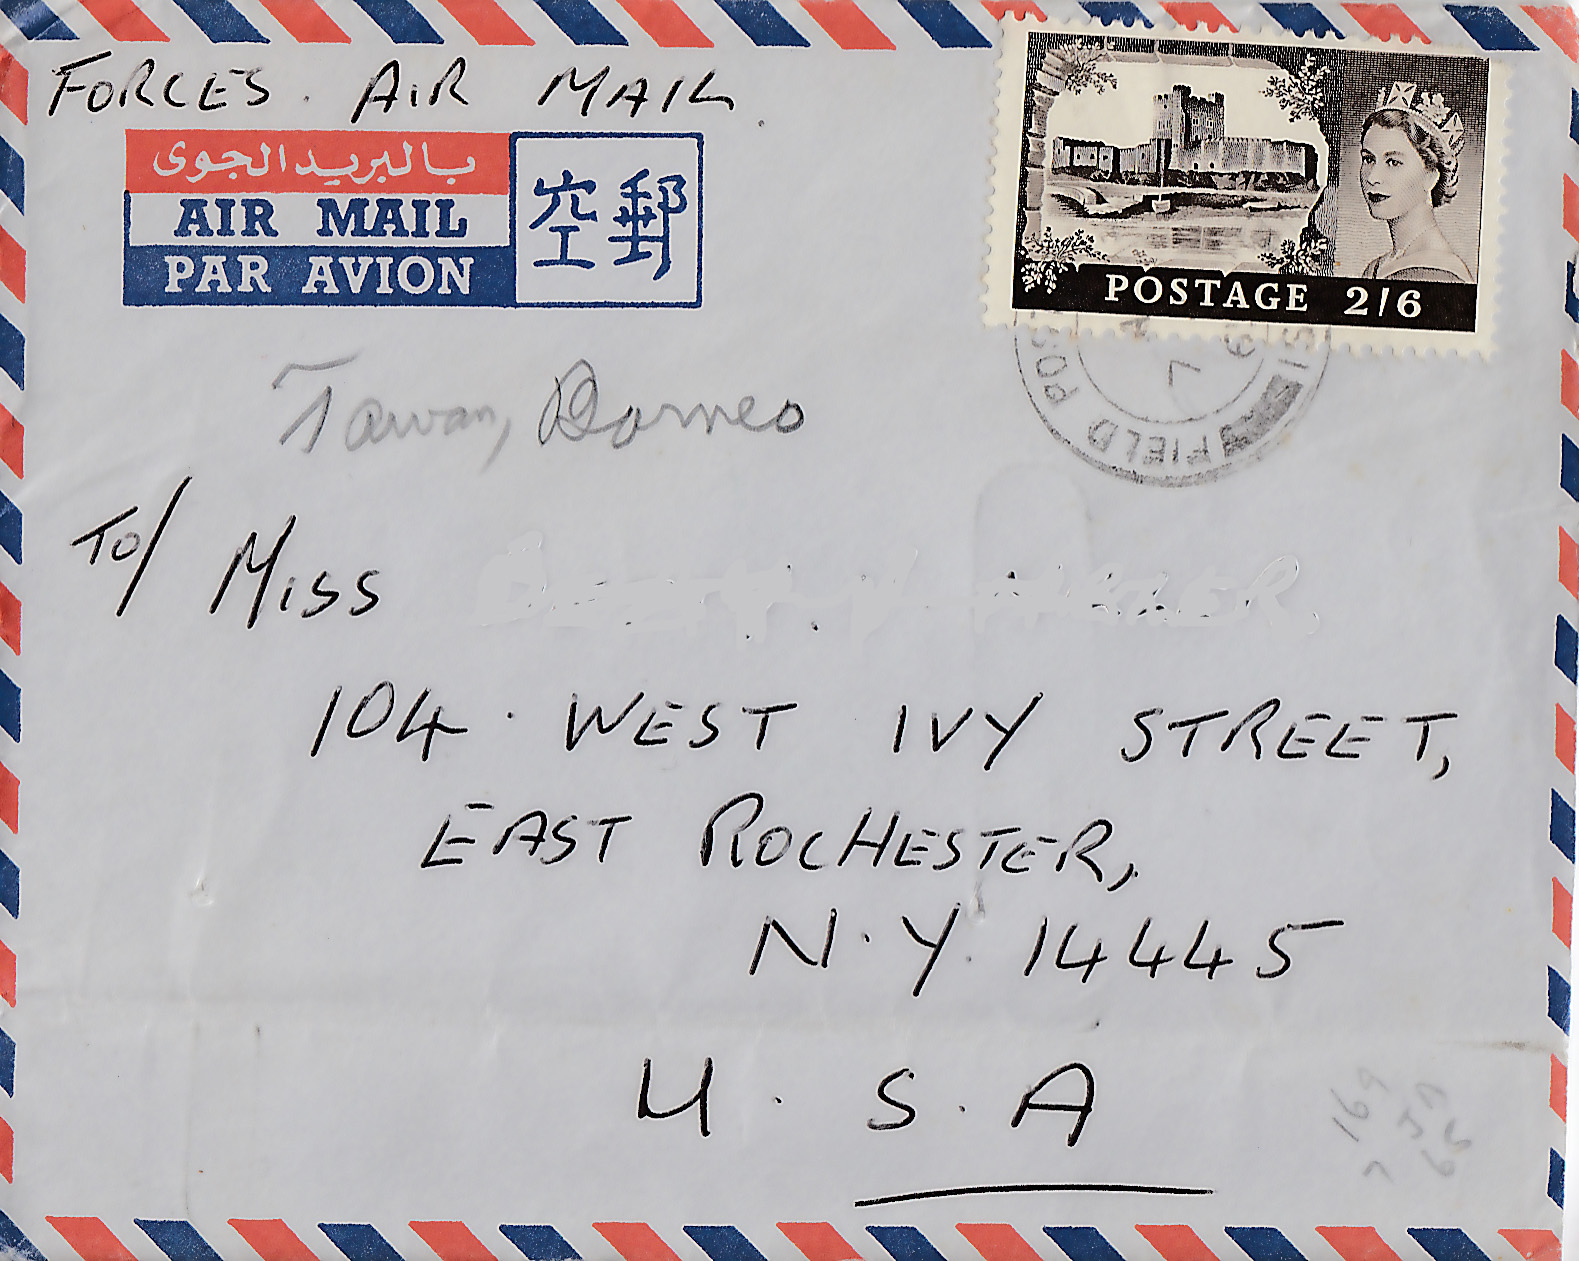 FORCES. AIR MAIL
بالبريد الجوى
AIR MAIL
PAR AVION
空郵
POSTAGE 2/6
FIELD POS
Tawau, Borneo
TO/ MISS
104. WEST IVY STREET,
EAST ROCHESTER,
N.Y. 14445
U.S.A
169
7 JA
65